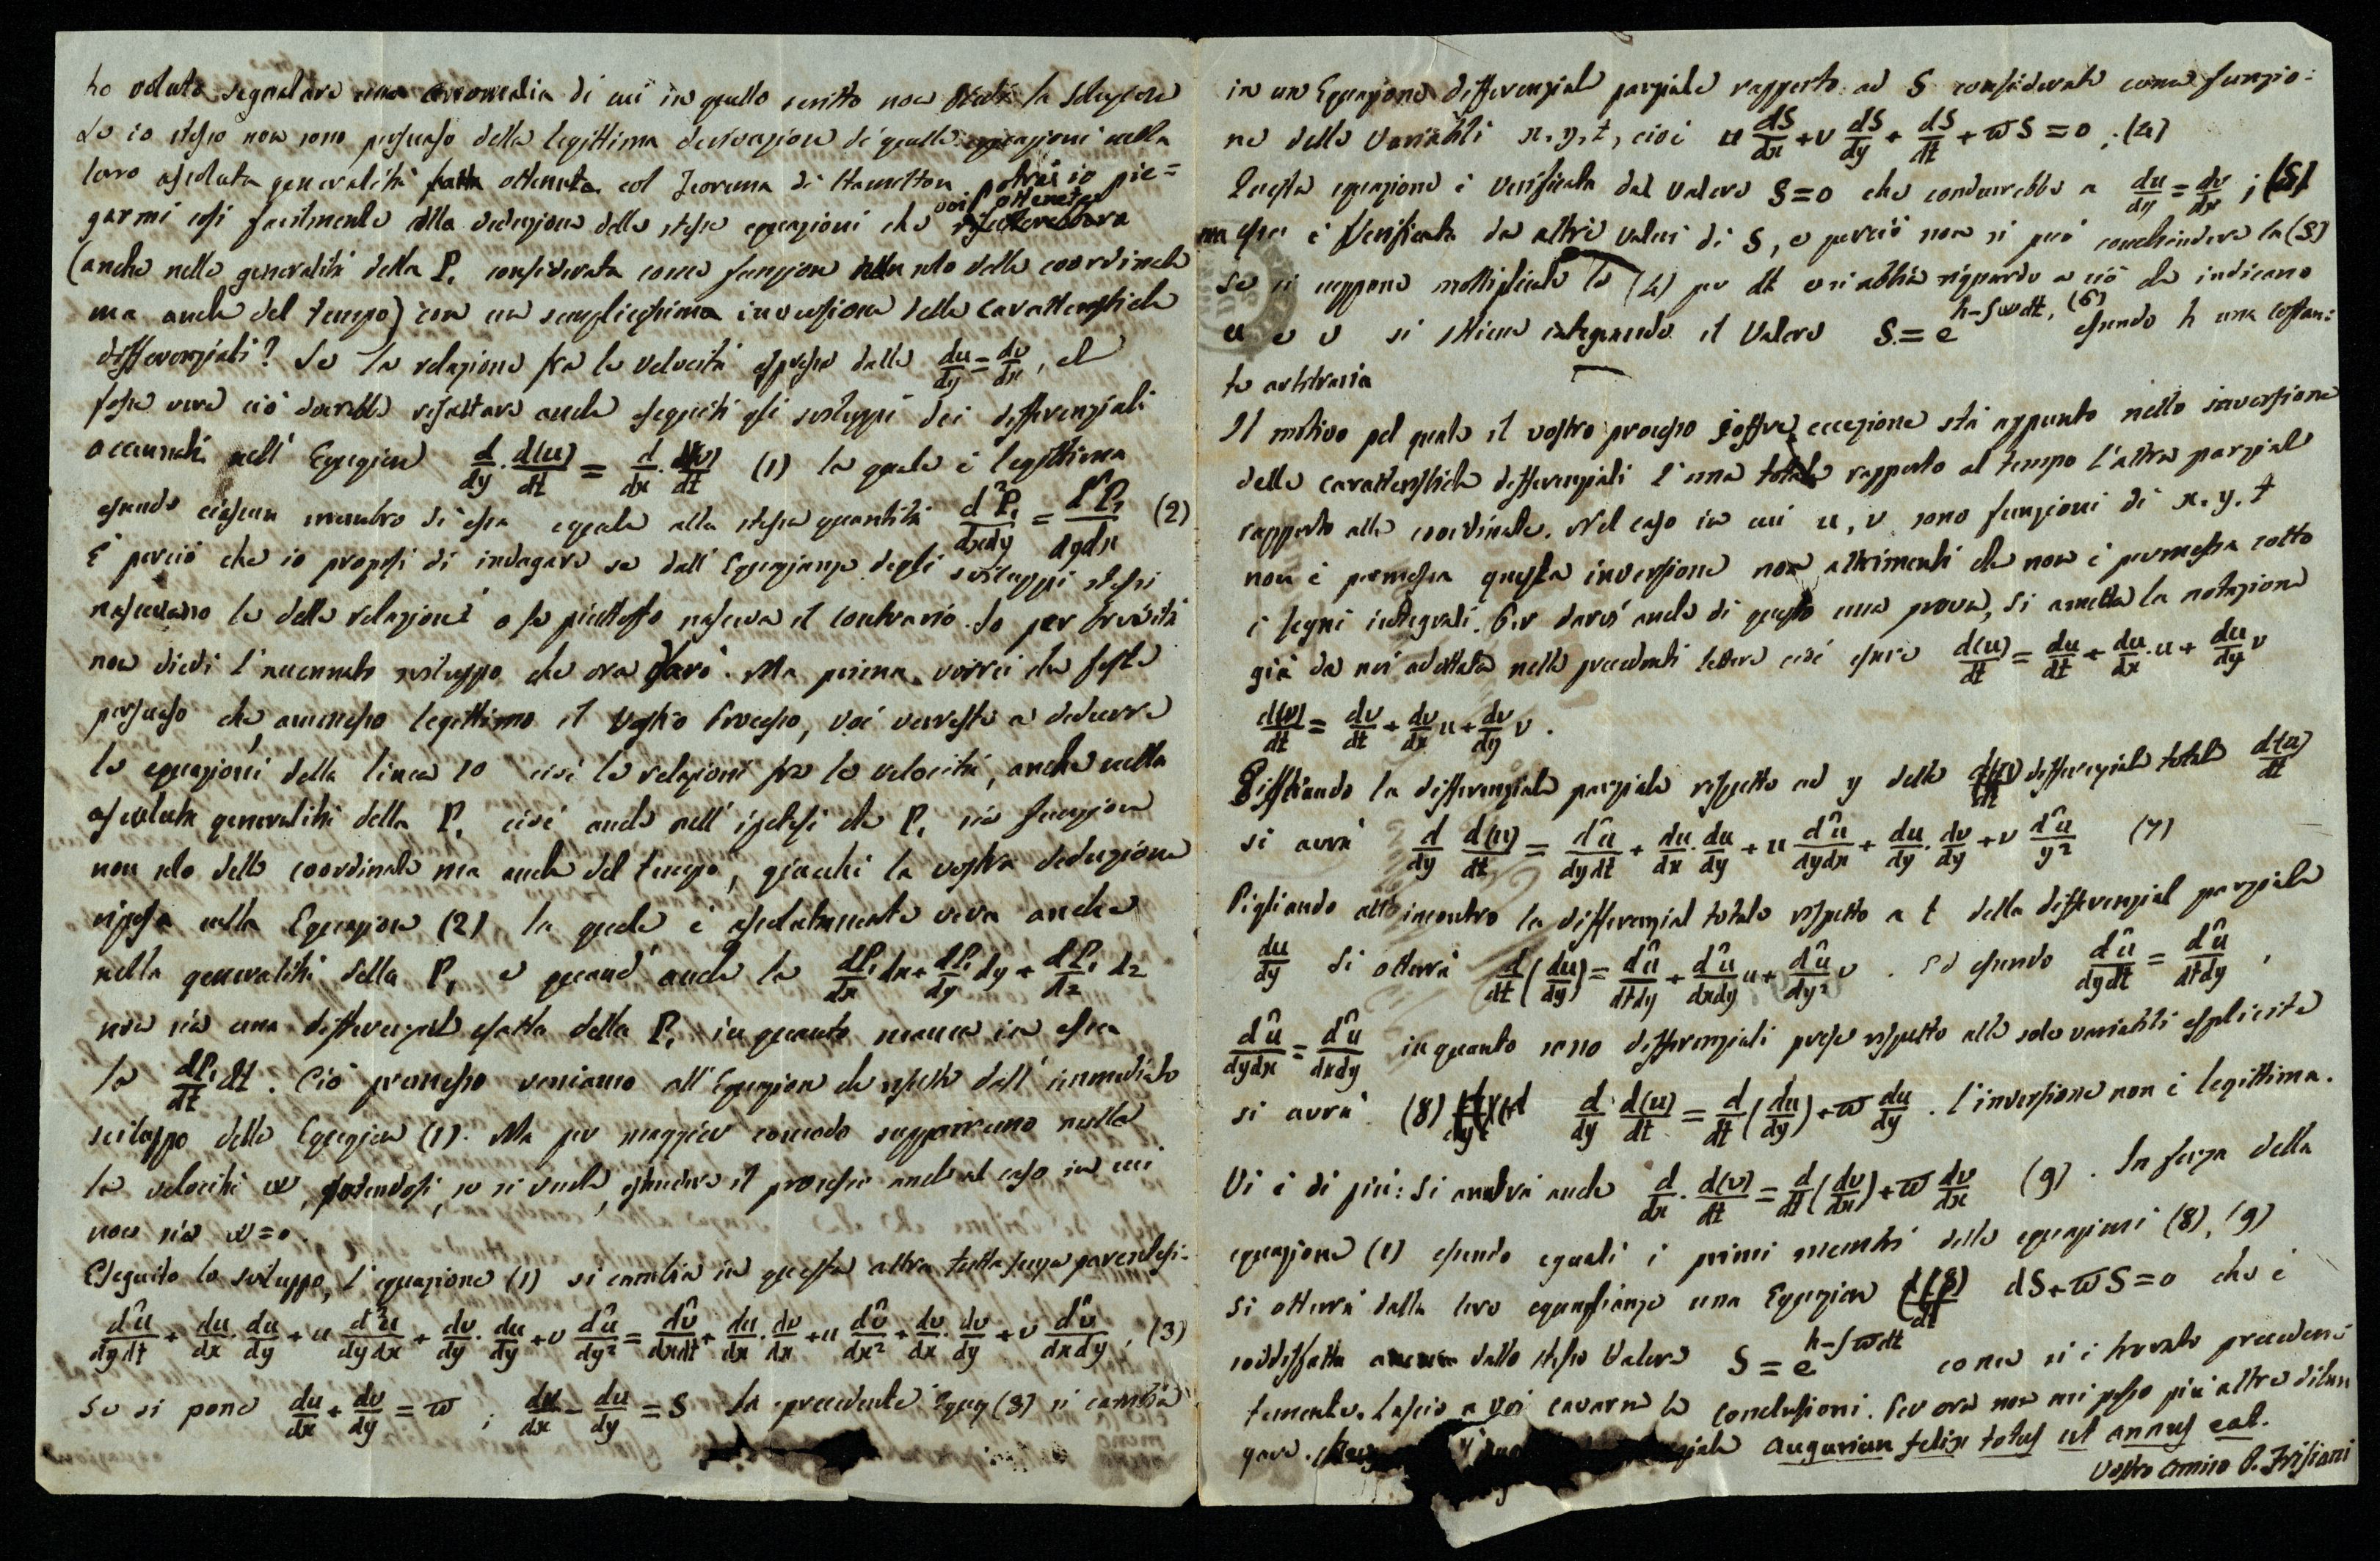 ho voluto segnalare una anomalia di cui in quello scritto non diedi la soluzione
Se io stesso non sono persuaso della legittima derivazione di quelle equazioni nella
loro assoluta generalità ottenuta col Teorema di Hamilton potrei io pie=
garmi così facilmente alla deduzione delle stesse equazioni che voi ottenete
(anche nella generalità della P₁ considerata come funzione non solo delle coordinate
ma anche del tempo) con una semplicissima inversione delle caratteristiche
differenziali? Se la relazione fra le velocità espressa dalla du/dy = dv/dx, el
fosse vera ciò dovrebbe risultare anche eseguiti gli sviluppi dei differenziali
accennati nell' Equazione d/dy . d(u)/dt = d/dx . d(v)/dt (1) la quale è legittima
essendo ciascun membro di essa eguale alla stessa quantità d²P₁/dxdy = d²P₁/dydx (2)
È perciò che io proposi di indagare se dall' Eguaglianza degli sviluppi stessi
nascevano le dette relazioni o se piuttosto nasceva il contrario. Io per brevità
non diedi l'accennato sviluppo che ora darò. Ma prima vorrei che foste
persuaso che, ammesso legittimo il Vostro Processo, voi verreste a dedurre
le equazioni della linea 10 cioè le relazioni fra le velocità, anche nella
assoluta generalità della P₁ cioè anche nell' ipotesi che P₁ sia funzione
non solo delle coordinate ma anche del tempo, giacchè la vostra deduzione
riposa sulla Equazione (2) la quale è assolutamente vera anche
nella generalità della P₁ e quand' anche la dP₁/dx dx + dP₁/dy dy + dP₁/dz dz
non sia una differenziale esatta della P₁ in quanto manca in essa
la dP₁/dt dt. Ciò premesso veniamo all' Equazione che risulta dall' immediato
sviluppo della Equazione (1). Ma per maggior comodo supporremo nulla
la velocità w, potendosi, se si vuole, estendere il processo anche al caso in cui
non sia w=0.
Eseguito lo sviluppo, l'equazione (1) si cambia in questa altra tutta senza parentesi.
d²u/dydt + du/dx . du/dy + u d²u/dydx + dv/dy . du/dy + v d²u/dy² = d²v/dxdt + du/dx . dv/dx + u d²v/dx² + dv/dx . dv/dy + v d²v/dxdy, (3)
Se si pone du/dx + dv/dy = ϖ ; dv/dx - du/dy = S la precedente Equaz (3) si cambia
in un Equazione differenziale parziale rapporto ad S considerata come funzio=
ne delle Variabili x, y, t, cioè u dS/dx + v dS/dy + dS/dt + ϖS = 0 ; (4)
Questa equazione è verificata dal valore S=0 che condurrebbe a du/dy = dv/dx ; (5)
ma essa è Verificata da altri valori di S, e perciò non si può conchiudere la (5)
Se si suppone moltiplicata la (4) per dt e si abbia riguardo a ciò che indicano
u e v si ottiene integrando il Valore S = e^(h-∫ϖdt), (6) essendo h una costan=
te arbitraria
Il motivo pel quale il vostro processo soffre eccezione stà appunto nella inversione
delle caratteristiche differenziali l'una totale rapporto al tempo l'altra parziale
rapporto alle coordinate. Nel caso in cui u, v sono funzioni di x, y, t
non è permessa questa inversione non altrimenti che non è permessa sotto
i segni integrali. Per darvi anche di questo una prova, si ametta la notazione
già da noi adottata nelle precedenti lettere cioè essere d(u)/dt = du/dt + du/dx . u + du/dy v
d(v)/dt = dv/dt + dv/dx u + dv/dy v .
Pigliando la differenziale parziale rispetto ad y della differenziale totale d(u)/dt
si avrà d/dy d(u)/dt = d²u/dydt + du/dx . du/dy + u d²u/dydx + du/dy . dv/dy + v d²u/y² (7)
Pigliando all'incontro la differenzial totale rispetto a t della differenzial parziale
du/dy si otterrà d/dt (du/dy) = d²u/dtdy + d²u/dxdy u + d²u/dy² v . Ed essendo d²u/dydt = d²u/dtdy ,
d²u/dydx = d²u/dxdy in quanto sono differenziali prese rispetto alle sole variabili esplicite
si avrà (8) d/dy d(u)/dt = d/dt (du/dy) + ϖ du/dy . l'inversione non è legittima.
Vi è di più: Si avrà anche d/dx . d(v)/dt = d/dt (dv/dx) + ϖ dv/dx (9). In forza della
equazione (1) essendo eguali i primi membri delle equazioni (8), (9)
si otterrà dalla loro eguaglianza una Equazione dS + ϖS = 0 che è
soddisfatta ancora dallo stesso Valore S = e^(h-∫ϖdt) come si è trovato preceden=
temente. Lascio a voi cavarne le conclusioni. Per ora non mi posso più altro dilun
gare. augurium felix totus ut annus eat.
Vostro Amico P. Frisiani